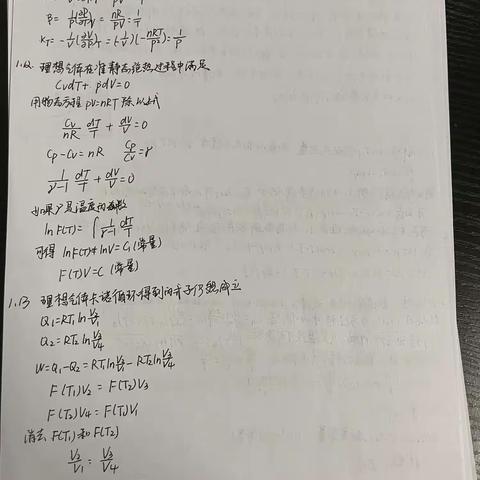 β = 1/P(∂P/∂T)V = nR/PV = 1/T
κT = -1/V(∂V/∂P)T = (-1/V)(-nRT/P²) = 1/P
1.12 理想气体在准静态绝热过程中满足
CvdT + pdV = 0
用物态方程 pV=nRT 除以上式
Cv/nR dT/T + dV/V = 0
Cp - Cv = nR Cp/Cv = γ
1/(γ-1) dT/T + dV/V = 0
如果γ是温度的函数
lnF(T) = ∫ 1/(γ-1) dT/T
可得 lnF(T) + lnV = C1 (常量)
F(T)V = C (常量)
1.13 理想气体卡诺循环得到的式子仍然成立
Q1 = RT1 ln V2/V1
Q2 = RT2 ln V3/V4
W = Q1 - Q2 = RT1 ln V2/V1 - RT2 ln V3/V4
F(T1)V2 = F(T2)V3
F(T2)V4 = F(T1)V1
消去 F(T1) 和 F(T2)
V2/V1 = V3/V4